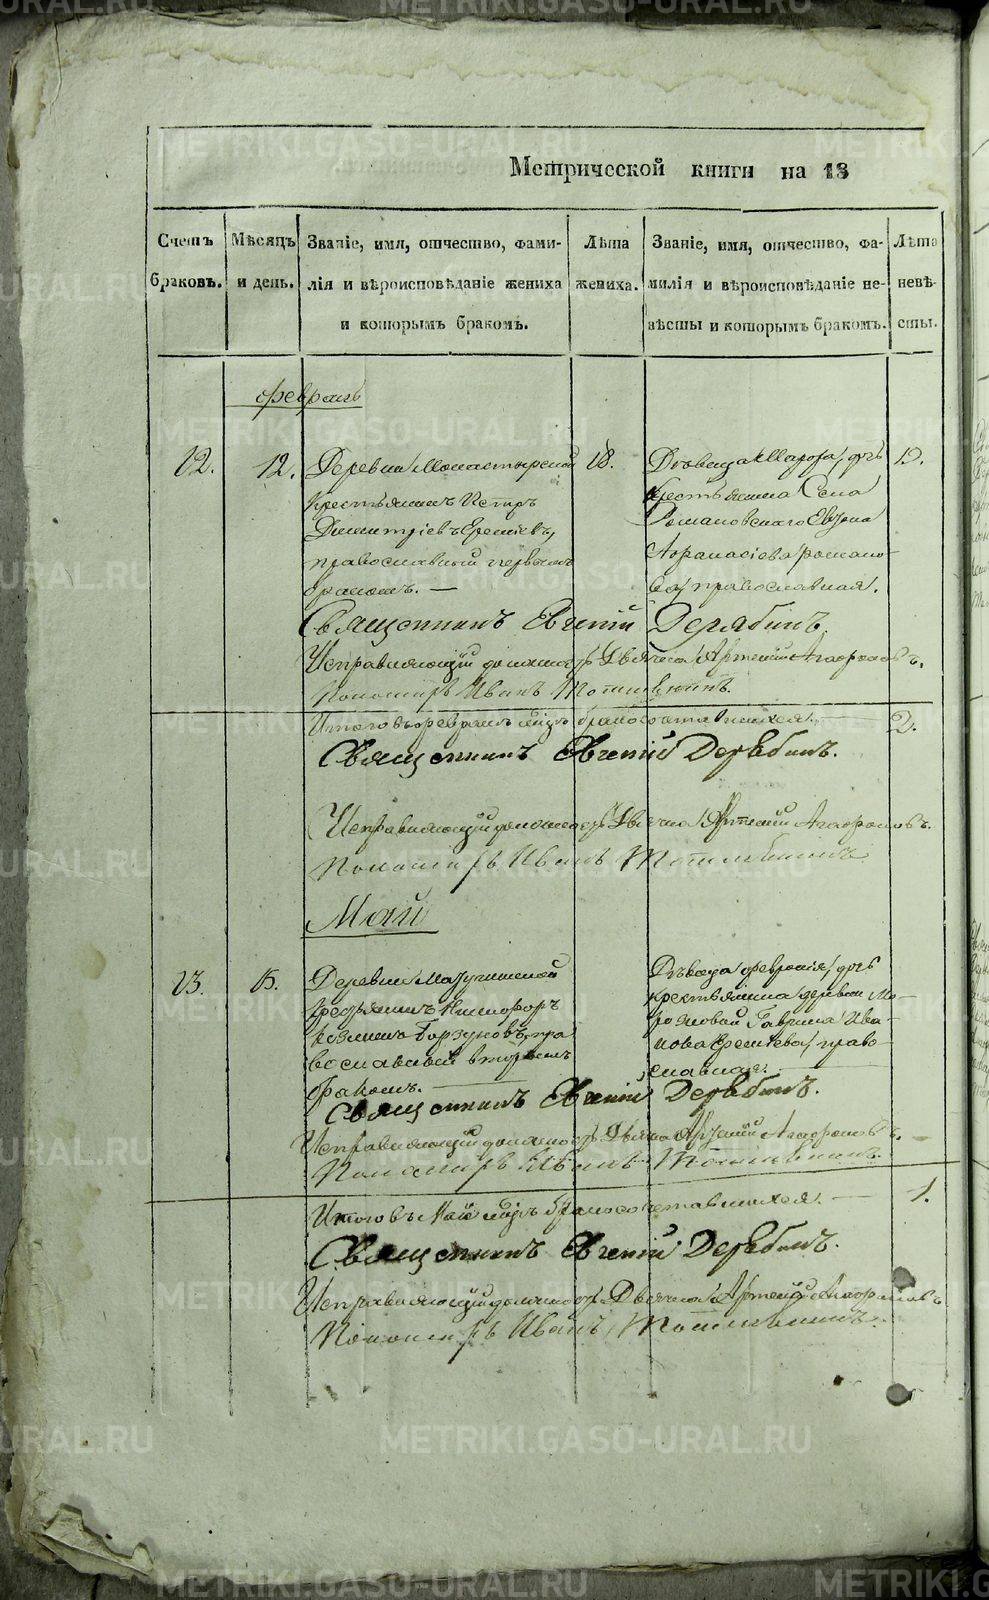 Метрической книги на 18
Счетъ браковъ.
Мѣсяцъ и день.
Званіе, имя, отчество, фами-
лія и вѣроисповѣданіе жениха
и которымъ бракомъ.
Лѣта жениха.
Званіе, имя, отчество, фа-
милія и вѣроисповѣданіе не-
вѣсты и которымъ бракомъ.
Лѣта невѣ-
сты.
февраль
12.
12.
Деревни Монастырской
крестьянинъ Петръ
Димитріевъ Еремѣевъ
православный первымъ
бракомъ. —
18.
Дѣвица Марѳа, дочь
крестьянина Села
Романовскаго
Аѳанасіева Романо-
ва, православная.
19.
Священникъ Евгеній Дерябинъ.
Исправляющій должность Дьячка Артемій Агафоновъ.
Пономарь Иванъ
Итого въ февралѣ мцѣ бракосочетавшихся. 2.
Священникъ Евгеній Дерябинъ.
Исправляющій должность Дьячка Артемій Агафоновъ.
Пономарь Иванъ
Май
13.
15.
Деревни
крестьянинъ Никифоръ
Козминъ Борзуновъ, пра
вославный вторымъ
бракомъ. —
Дѣвица Февронія, дочь
крестьянина деревни Мо-
розковой Гаврила Ива-
нова Еремѣева, право-
славная. —
Священникъ Евгеній Дерябинъ.
Исправляющій должность Дьячка Артемій Агафоновъ.
Пономарь Иванъ
Итого въ Маѣ мцѣ бракосочетавшихся. — 1.
Священникъ Евгеній Дерябинъ.
Исправляющій должность Дьячка Артемій Агафоновъ
Пономарь Иванъ
METRIKI.GASO-URAL.RU